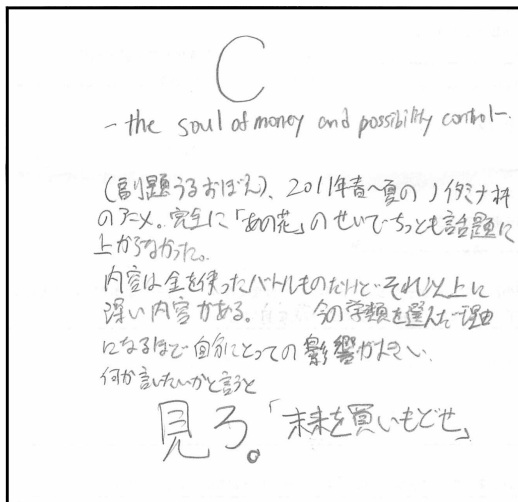 C
- the soul of money and possibility control -.
(副題うるおぼえ)、2011年春~夏のノイタミナ枠
のアニメ。完全に「あの花」のせいでちっとも話題に
上がらなかった。
内容は金を使ったバトルものだけど、それ以上に
深い内容がある。 今の学類を選んだ理由
になるほど自分にとっての影響が大きい。
何が言いたいかと言うと
見ろ。「未来を買いもどせ」